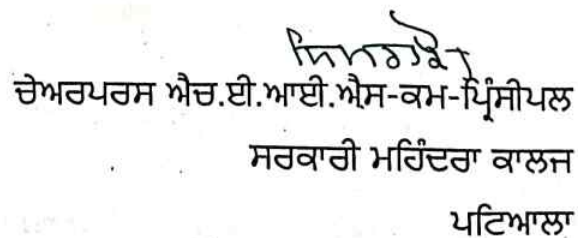 ਚੇਅਰਪਰਸ ਐਚ.ਈ.ਆਈ.ਐਸ-ਕਮ-ਪ੍ਰਿੰਸੀਪਲ
ਸਰਕਾਰੀ ਮਹਿੰਦਰਾ ਕਾਲਜ
ਪਟਿਆਲਾ